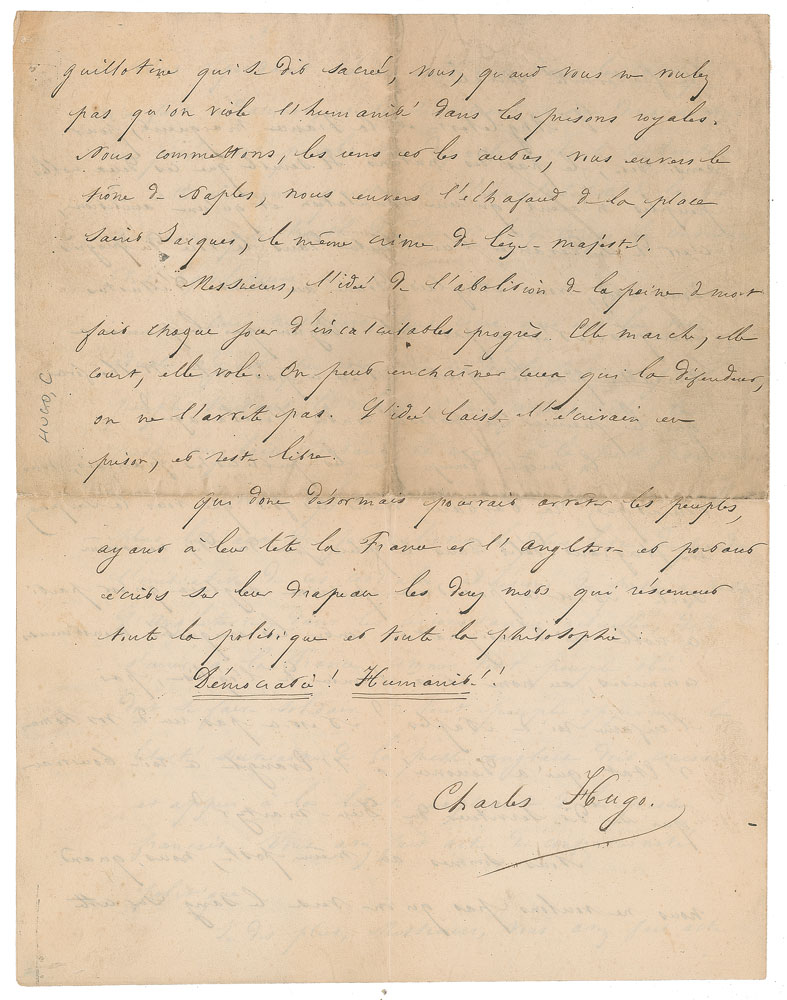 guillotine qui se dit sacrée, vous, quand vous ne voulez
pas qu'on viole l'humanité dans les prisons royales.
Nous commettons, les uns et les autres, vous envers le
trône de Naples, nous envers l'échafaud de la place
Saint Jacques, le même crime de lèze-majesté.
Messieurs, l'idée de l'abolition de la peine de mort
fait chaque jour d'incalculables progrès. Elle marche, elle
court, elle vole. On peut enchaîner ceux qui la défendent,
on ne l'arrête pas. L'idée laisse l'écrivain en
prison, et reste libre.
Qui donc désormais pourrait arrêter les peuples,
ayant à leur tête la France et l'Angleterre et portant
écrits sur leur drapeau les deux mots qui résument
toute la politique et toute la philosophie :
Démocratie ! Humanité !
Charles Hugo.
HUGO, C